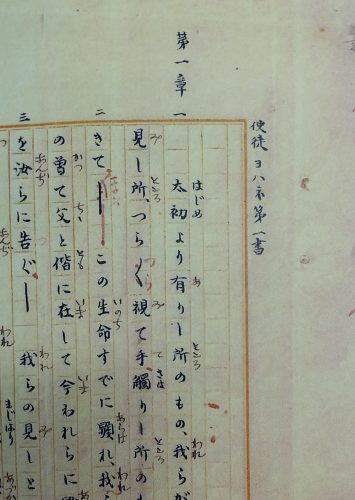 使徒ヨハネ第一書
第一章
一 太初より有りし所のもの、我らが
見し所、つらつら視て手觸りし所の
二 きて── この生命すでに顯れ、我ら
の曽て父と偕に在して今われらに
三 を汝らに告ぐ── 我らの見しと